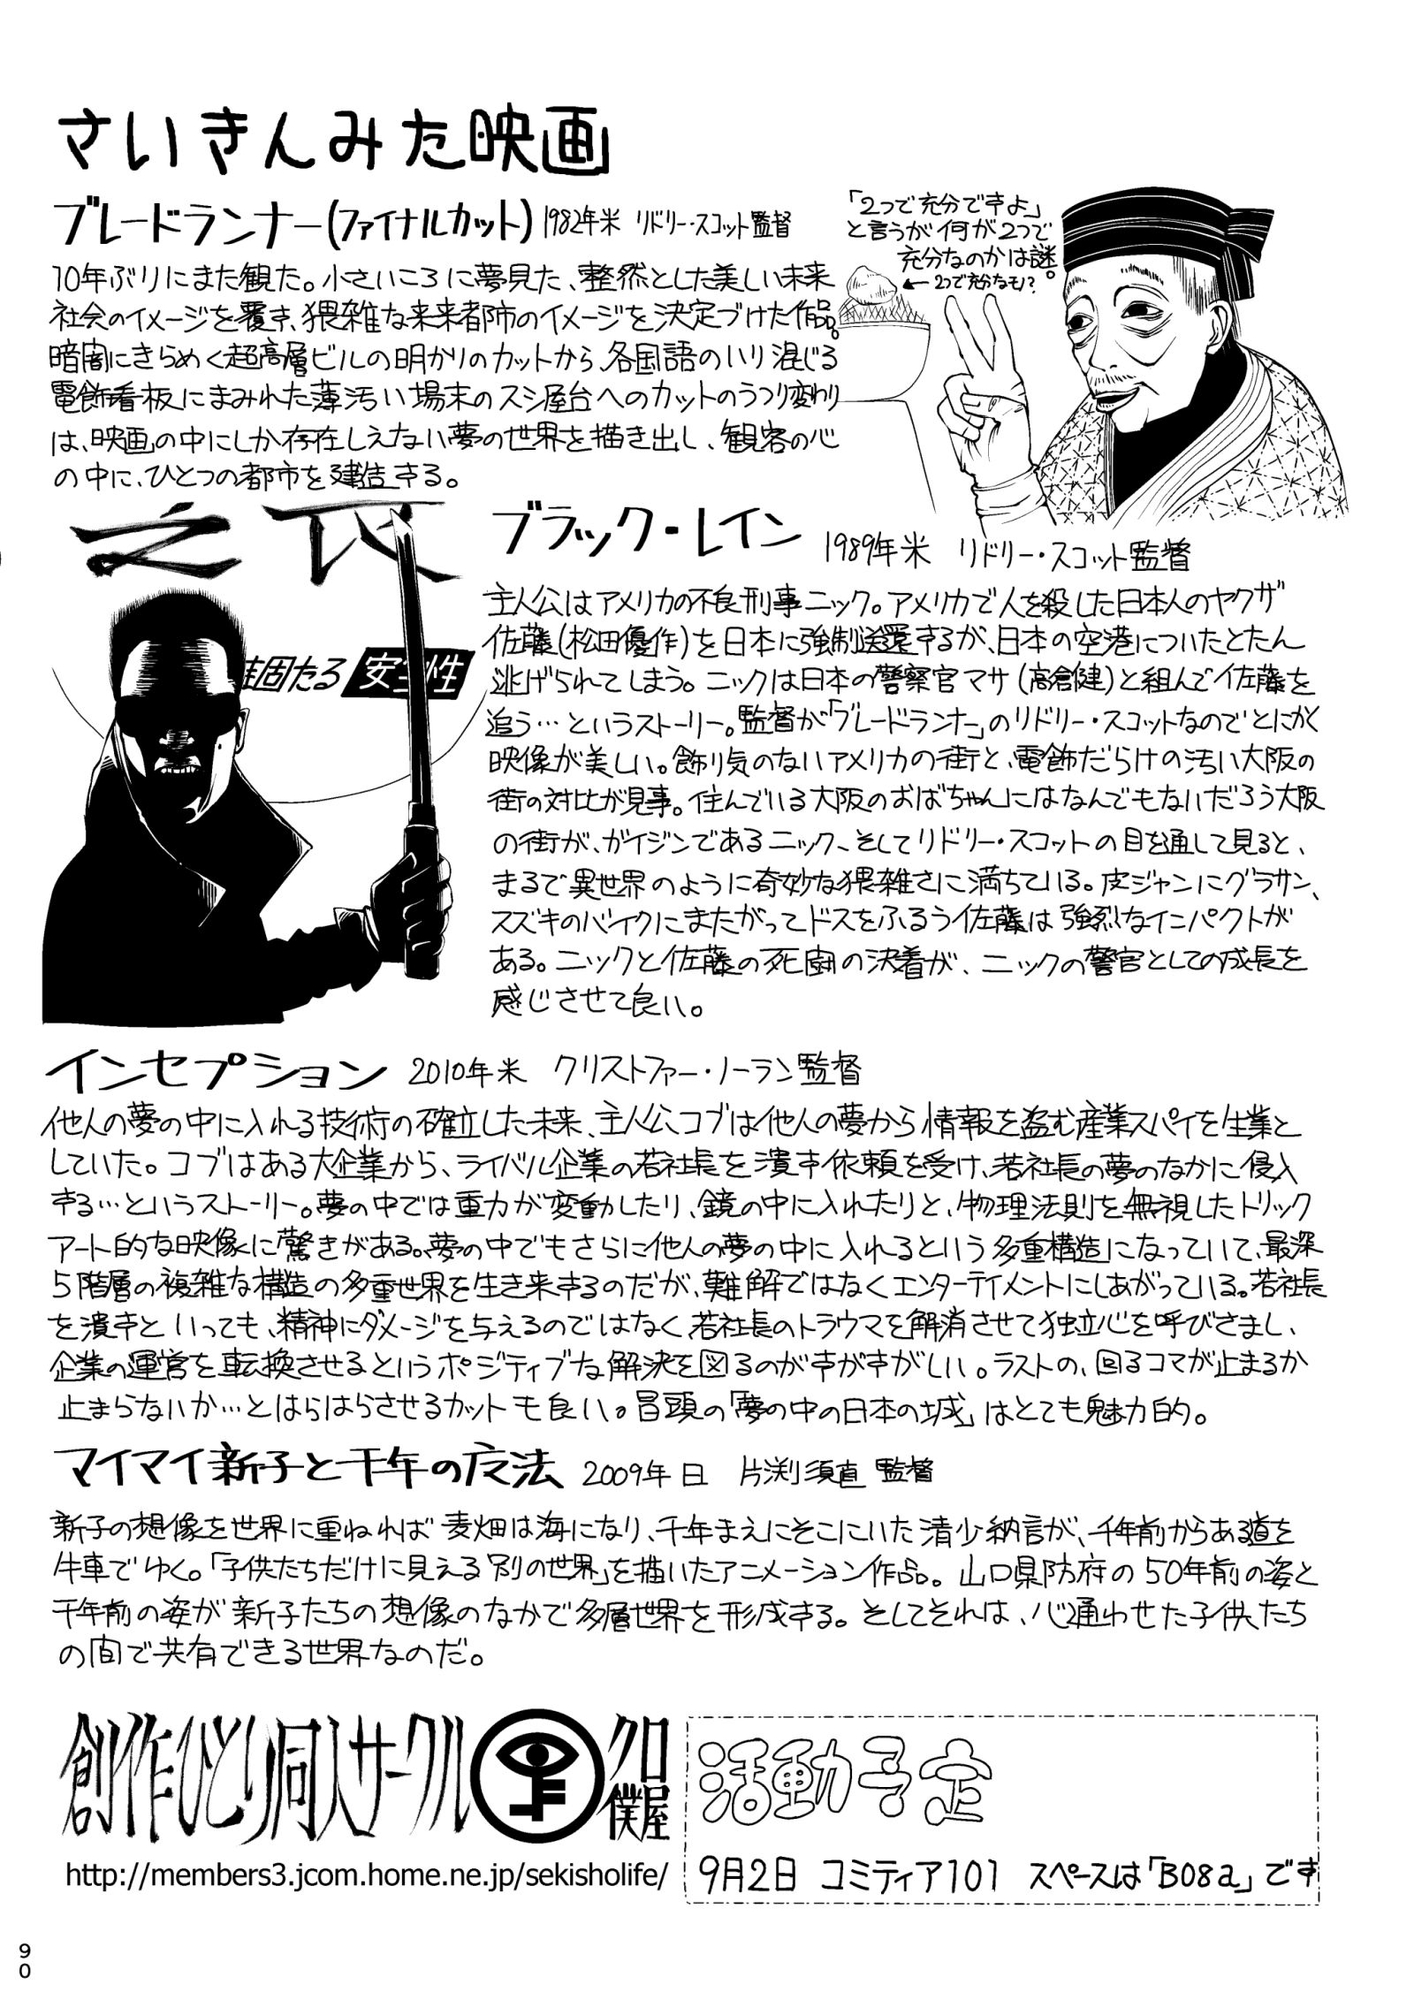 さいきんみた映画
ブレードランナー(ファイナルカット) 1982年米 リドリー・スコット監督
10年ぶりにまた観た。小さいころに夢見た、整然とした美しい未来
社会のイメージを覆き、猥雑な未来都市のイメージを決定づけた作品。
暗闇にきらめく超高層ビルの明かりのカットから、各国語のいり混じる
電飾看板にまみれた薄汚い場末のスシ屋台へのカットのうつり変わり
は、映画の中にしか存在しえない夢の世界を描き出し、観客の心
の中に、ひとつの都市を建造する。
「2つで充分ですよ」
と言うが何が2つで
充分なのかは謎。
←2つで充分なモノ?
堅固たる 安全性
ブラック・レイン 1989年米 リドリー・スコット監督
主人公はアメリカの不良刑事ニック。アメリカで人を殺した日本人のヤクザ
佐藤(松田優作)を日本に強制送還するが、日本の空港についたとたん
逃げられてしまう。ニックは日本の警察官マサ(高倉健)と組んで佐藤を
追う…というストーリー。監督が「ブレードランナー」のリドリー・スコットなのでとにかく
映像が美しい。飾り気のないアメリカの街と、電飾だらけの汚い大阪の
街の対比が見事。住んでいる大阪のおばちゃんにはなんでもないだろう大阪
の街が、ガイジンであるニック、そしてリドリー・スコットの目を通して見ると、
まるで異世界のように奇妙な猥雑さに満ちている。皮ジャンにグラサン、
スズキのバイクにまたがってドスをふるう佐藤は強烈なインパクトが
ある。ニックと佐藤の死闘の決着が、ニックの警官としての成長を
感じさせて良い。
インセプション 2010年米 クリストファー・ノーラン監督
他人の夢の中に入れる技術の確立した未来、主人公コブは他人の夢から情報を盗む産業スパイを生業と
していた。コブはある大企業から、ライバル企業の若社長を潰す依頼を受け、若社長の夢のなかに侵入
する…というストーリー。夢の中では重力が変動したり、鏡の中に入れたりと、物理法則を無視したトリック
アート的な映像に驚きがある。夢の中でもさらに他人の夢の中に入れるという多重構造になっていて、最深
5階層の複雑な構造の多重世界を生き来するのだが、難解ではなくエンターテイメントにしあがっている。若社長
を潰すといっても、精神にダメージを与えるのではなく、若社長のトラウマを解消させて独立心を呼びさまし、
企業の運営を転換させるというポジティブな解決を図るのがすがすがしい。ラストの、回るコマが止まるか
止まらないか…とはらはらさせるカットも良い。冒頭の「夢の中の日本の城」はとても魅力的。
マイマイ新子と千年の魔法 2009年日 片渕須直 監督
新子の想像を世界に重ねれば麦畑は海になり、千年まえにそこにいた清少納言が、千年前からある道を
牛車でゆく。「子供たちだけに見える別の世界」を描いたアニメーション作品。山口県防府の50年前の姿と
千年前の姿が新子たちの想像のなかで多層世界を形成する。そしてそれは、心通わせた子供たち
の間で共有できる世界なのだ。
創作ひとり同人サークル クロ僕屋
http://members3.jcom.home.ne.jp/sekisholife/
活動予定
9月2日 コミティア101 スペースは「B08a」です
90